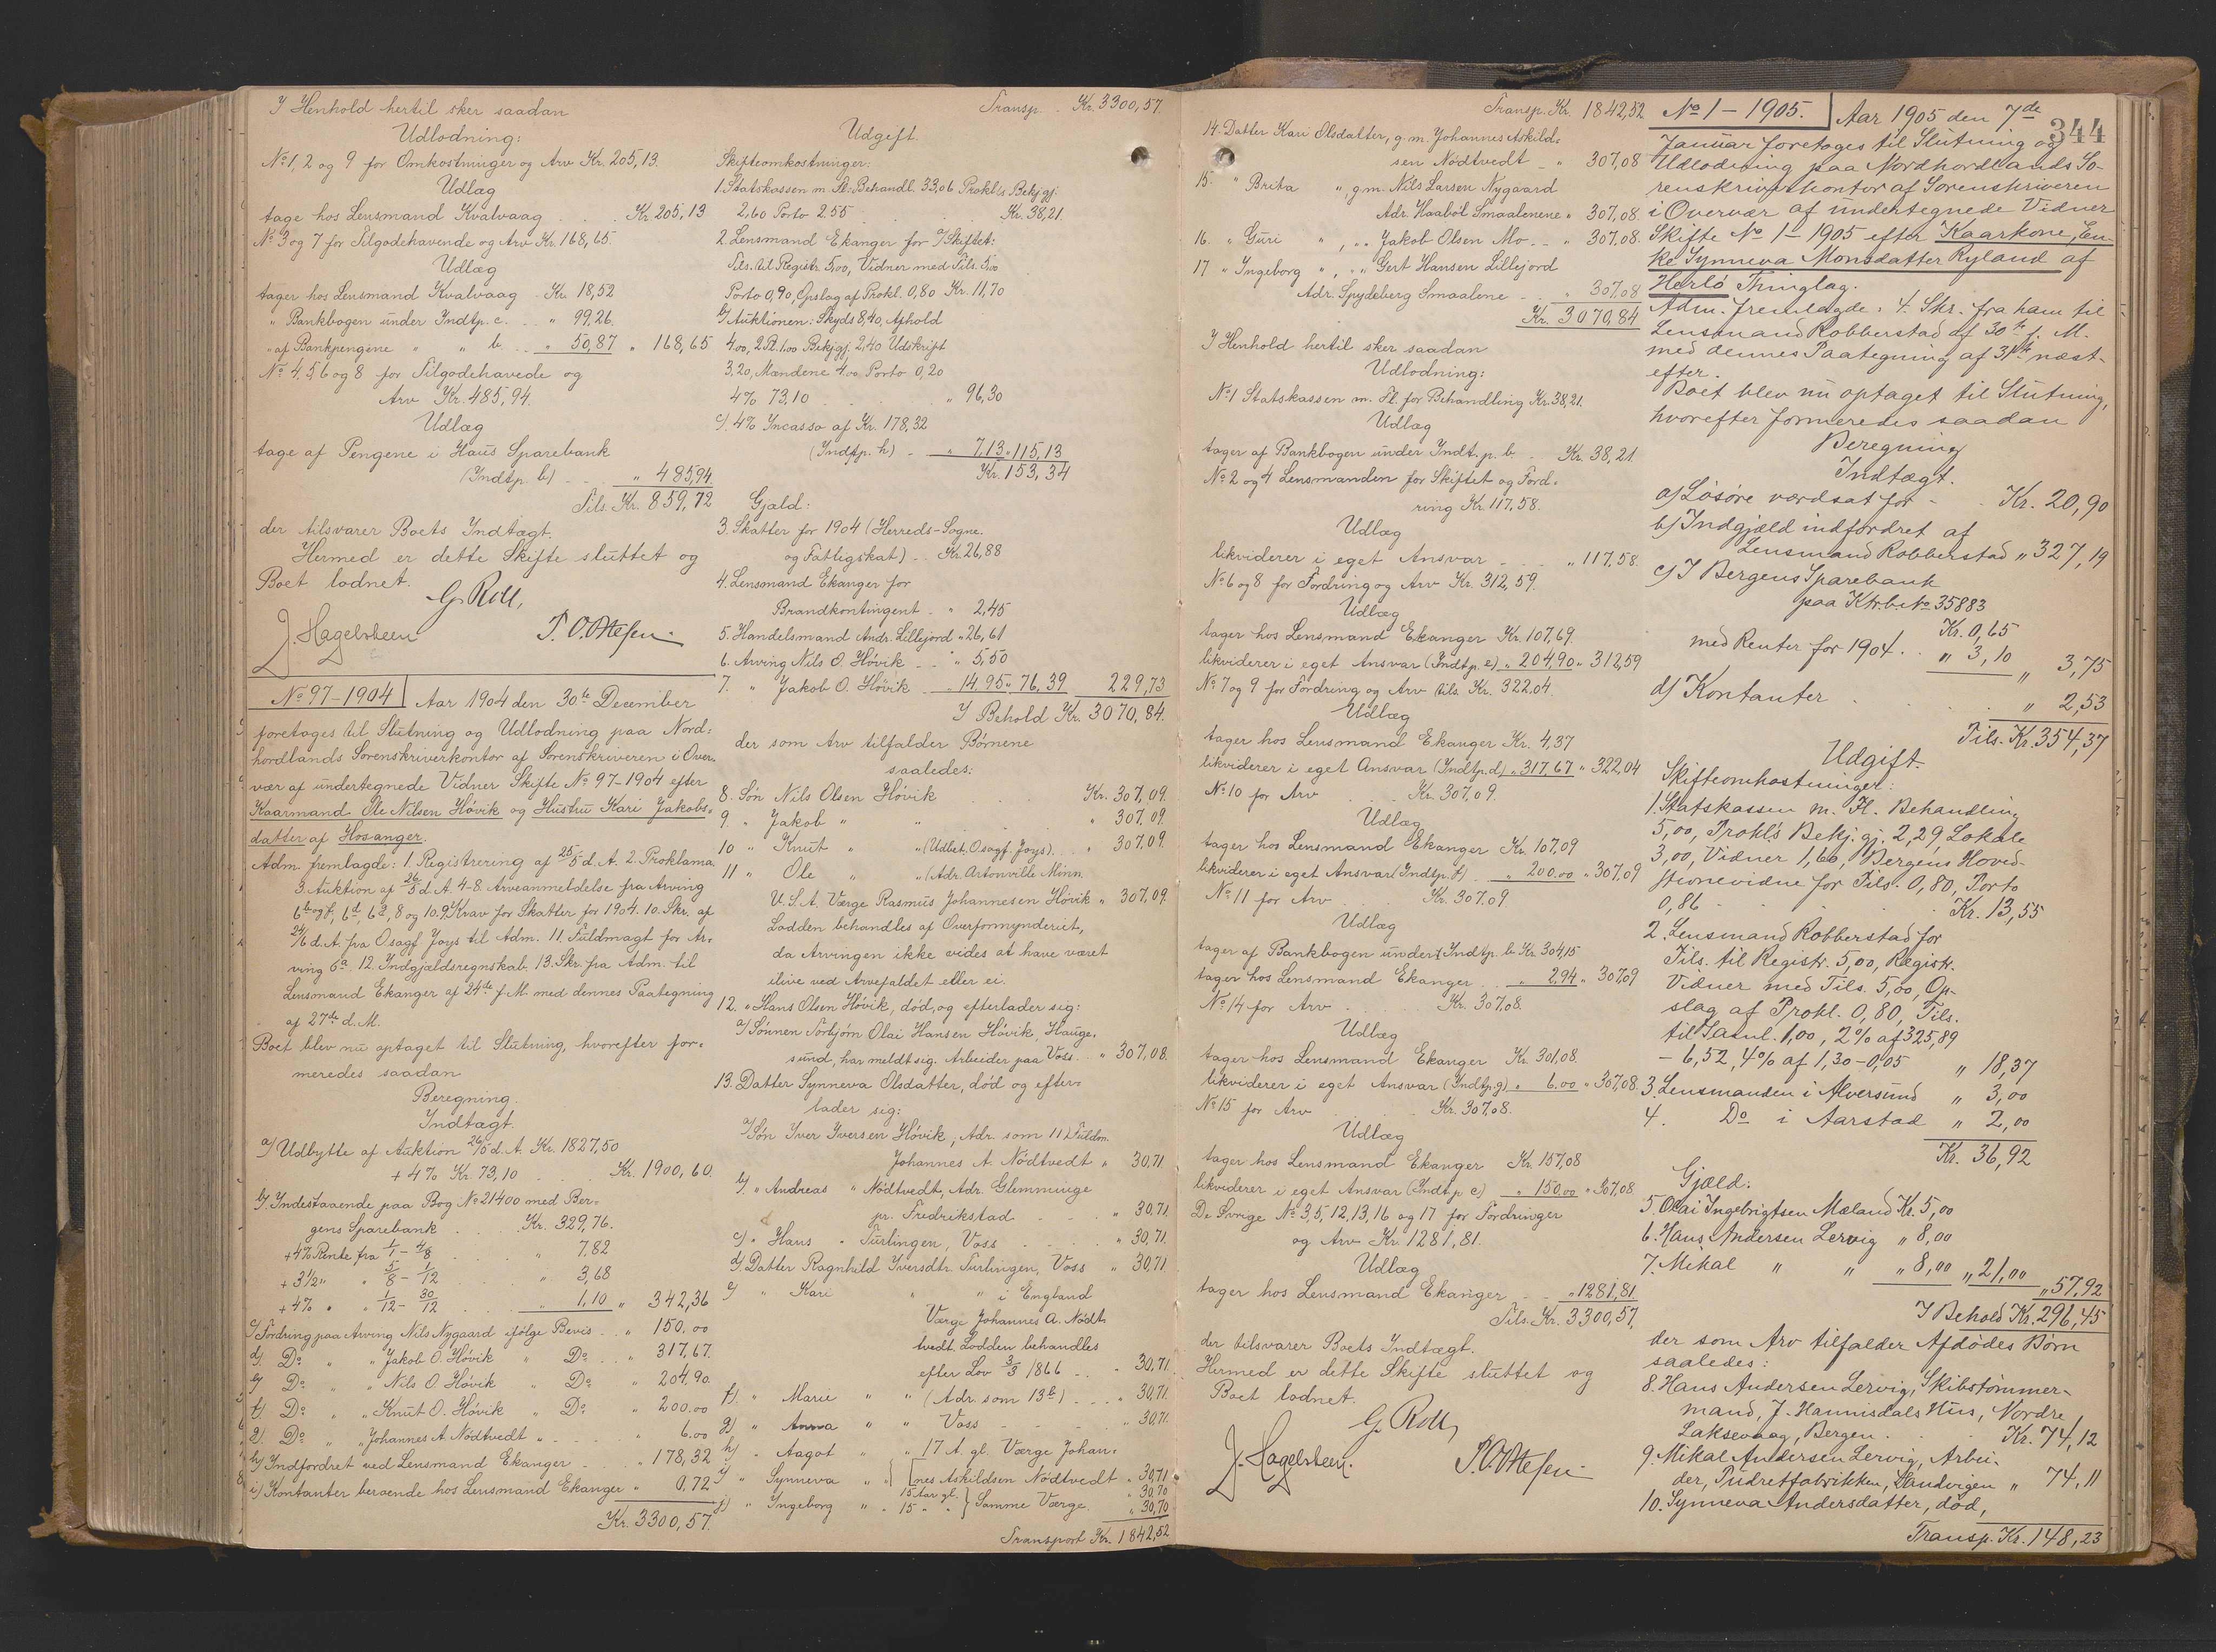 I Henhold hertil sker saadan
Udlodning:
No 1, 2 og 9 for Omkostninger og Arv Kr. 205,13.
Udlæg
tage hos Lensmand Kvalvaag . . Kr. 205,13
No 3 og 7 for Tilgodehavende og Arv Kr. 168,65.
Udlæg
tager hos Lensmand Kvalvaag Kr. 18,52
" Bankbogen under Indtp. c. . . " 99,26.
" af Bankpengene " " b. . . " 50,87 " 168,65
No 4, 5, 6 og 8 for Tilgodehavede og
Arv Kr. 485,94.
Udlæg
tage af Pengene i Haus Sparebank
(Indtp. b) . . " 485,94
Tils. Kr. 859,72
der tilsvarer Boets Indtægt.
Hermed er dette Skifte sluttet og
Boet lodnet.
G. Roll,
J. Hagelsteen P. O. Ottesen.
No 97-1904 Aar 1904 den 30te December
foretoges til Slutning og Udlodning paa Nord-
hordlands Sorenskriverkontor af Sorenskriveren i Over-
vær af undertegnede Vidner Skifte No 97-1904 efter
Kaarmand Ole Nilsen Høvik og Hustru Kari Jakobs-
datter af Hosanger.
Adm. fremlagde: 1. Registrering af 25/5 d. A. 2. Proklama
3. Auktion af 26/5 d. A. 4-8. Arveanmeldelse fra Arving
6b og f, 6d, 6g, 8 og 10. 9. Krav for Skatter for 1904. 10. Skr. af
24/6 d. A. fra O.sagf. Joys til Adm. 11. Fuldmagt for Ar-
ving 6a. 12. Indgjældsregnskab. 13. Skr. fra Adm. til
Lensmand Ekanger af 24de f. M. med dennes Paategning
af 27de d. M.
Boet blev nu optaget til Slutning, hvorefter for-
meredes saadan
Beregning.
Indtægt.
a) Udbytte af Auktion 26/5 d. A. Kr. 1827,50
+ 4% Kr. 73,10 . . Kr. 1900,60.
b). Indestaaende paa Bog No 21400 med Ber-
gens Sparebank . Kr. 329,76.
+ 4% Rente fra 1/1 - 4/8 . . " 7,82
+ 3 1/2 " " 5/8 - 1/12 . . " 3,68
+ 4% " " 1/12 - 30/12 . . " 1,10 " 342,36
c) Fordring paa Arving Nils Nygaard ifølge Bevis . . " 150.00
d). Do " " Jakob O. Høvik " Do . . " 317,67.
e) Do " " Nils O. Høvik " Do " 204,90.
f) Do " " Knut O. Høvik " Do " 200.00
g). Do " " Johannes A. Nødtvedt " . . " 6.00
h) Indfordret ved Lensmand Ekanger . . " 178,32
i) Kontanter beroende hos Lensmand Ekanger " 0,72
Kr. 3300,57.
Transp. . Kr. 3300,57.
Udgift.
Skifteomkostninger:
1. Statskassen m. Fl: Behandl. 33,06 Prokl's Bekj.gj:
2,60 Porto 2.55 . . Kr. 38,21.
2. Lensmand Ekanger for a/ Skiftet:
Tils. til Registr. 5,00, Vidner med Tils. 5,00
Porto 0,90, Opslag af Prokl. 0,80 Kr. 11,70
b/ Auktionen: Skyds 8,40, Afhold
4.00, 2 St. 1.00 Bekj.gj. 2,40 Udskrift
3,20, Mændene 4.00 Porto 0,20
4% 73,10 . . " 96,30
c/. 4% Incasso af Kr. 178,32
(Indtp. h) . . " 7,13 " 115,13
Kr. 153,34
Gjæld:
3. Skatter for 1904 (Herreds-Sogne-
og Fattigskat) . . Kr. 26,88
4. Lensmand Ekanger for
Brandkontingent . " 2,45
5. Handelsmand Andr. Lillejord " 26,61
6. Arving Nils O. Høvik . . " 5,50
7. " Jakob O. Høvik . . 14,95 " 76,39 229,73
I Behold Kr. 3070,84.
der som Arv tilfalder Børnene
saaledes:
8. Søn Nils Olsen Høvik . . Kr. 307,09.
9 " Jakob " " . . " 307.09.
10 " Knut " " (Udbet. O.sagf. Joys) . . " 307,09.
11 " Ole " " (Adr. Artonville Minn.
U. S. A. Værge Rasmus Johannesen Høvik " 307,09
Lodden behandles af Overformynderiet,
da Arvingen ikke vides at have været
ilive ved Arvefaldet eller ei.
12. " Hans Olsen Høvik, død, og efterlader sig:
a) Sønnen Torbjørn Olai Hansen Høvik, Hauge-
sund, har meldt sig. Arbeider paa Voss. . " 307,08.
13. Datter Synneva Olsdatter, død og efter-
lader sig:
a) Søn Iver Iversen Høvik, Adr. som 11) Fuldm.
Johannes A. Nødtvedt " 30,71.
b). " Andreas " Nødtvedt, Adr. Glemminge
pr. Fredrikstad . . " 30,71
c) " Hans " Turlingen, Voss . . " 30,71.
d). Datter Ragnhild Iversdtr. Turlingen, Voss " 30,71
e) " Kari " " i England
Værge Johannes A. Nødt-
tvedt. Lodden behandles
efter Lov 3/3 1866 . . " 30,71.
f). " Marie " " (Adr. som 13b) . . " 30,71.
g) " Anna " " Voss . . " 30,71.
h) " Aagot " " 17 A. gl. Værge Johan-
i) " Synneva " " nes Askildsen Nødtvedt " 30,71
15 Aar gl. " 30,70
j) " Ingeborg " " 15 " " Samme Værge. " 30,70
Transport Kr. 1842,52
Transp. Kr. 1842,52
14. Datter Kari Olsdatter, g. m. Johannes Askild-
sen Nødtvedt . . " 307,08
15. " Brita " , g m. Nils Larsen Nygaard
Adr. Haabøl Smaalenene " 307,08.
16. " Guri " , " " Jakob Olsen Mo . . " 307,08.
17 " Ingeborg " , " " Gert Hansen Lillejord
Adr. Spydeberg Smaalene . . " 307,08
Kr. 3070,84
I Henhold hertil sker saadan
Udlodning:
No 1 Statskassen m. Fl. for Behandling Kr. 38,21.
Udlæg
tager af Bankbogen under Indt. p. b . . Kr. 38,21.
No 2 og 4 Lensmanden for Skiftet og Ford-
ring Kr. 117,58.
Udlæg
likviderer i eget Ansvar . . " 117,58.
No 6 og 8 for Fordring og Arv Kr. 312,59.
Udlæg
tager hos Lensmand Ekanger Kr. 107,69.
likviderer i eget Ansvar (Indtp. e) " 204,90 " 312,59
No 7 og 9 for Fordring og Arv tils. Kr. 322,04.
Udlæg
tager hos Lensmand Ekanger Kr. 4,37
likviderer i eget Ansvar (Indtp. d) " 317,67 " 322,04
No 10 for Arv . . Kr. 307,09.
Udlæg
tager hos Lensmand Ekanger Kr. 107,09
likviderer i eget Ansvar (Indtp. f) . . " 200.00 " 307,09
No 11 for Arv . . Kr. 307.09.
Udlæg
tager af Bankbogen under Indtp. b. Kr. 304,15
tager hos Lensmand Ekanger . . " 2,94 " 307,09
No 14 for Arv . . Kr. 307,08.
Udlæg
tager hos Lensmand Ekanger Kr. 301,08.
likviderer i eget Ansvar (Indtp. g) " 6,00 " 307,08.
No 15 for Arv . . Kr. 307,08.
Udlæg
tager hos Lensmand Ekanger Kr. 157,08
likviderer i eget Ansvar (Indtp c) " 150,00 " 307,08.
De Øvrige No 3, 5, 12, 13, 16 og 17 for Fordringer
og Arv Kr. 1281,81.
Udlæg
tager hos Lensmand Ekanger . . " 1281,81
Tils. Kr. 3300,57,
der tilsvarer Boets Indtægt.
Hermed er dette Skifte sluttet og
Boet lodnet.
G. Roll,
J. Hagelsteen. P. O. Ottesen.
344
No 1 - 1905. Aar 1905 den 7de
Januar foretoges til Slutning og
Udlodning paa Nordhordlands So-
renskriverkontor af Sorenskriveren
i Overvær af undertegnede Vidner
Skifte No 1 - 1905 efter Kaarkone, En-
ke Synneva Monsdatter Ryland af
Herlø Thinglag.
Adm. fremlagde: 4. Skr. fra ham til
Lensmand Robberstad af 30te f. M.
med dennes Paategning af 31te næst-
efter.
Boet blev nu optaget til Slutning,
hvorefter formeredes saadan
Beregning
Indtægt.
a) Løsøre værdsat for . . Kr. 20,90
b) Indgjæld indfordret af
Lensmand Robberstad " 327,19
c) I Bergens Sparebank
paa Ktrb. No 35883
Kr. 0,65
med Renter for 1904 . . " 3,10 " 3,75
d) Kontanter . . " 2,53
Tils. Kr. 354,37
Udgift.
Skifteomkostninger:
1. Statskassen m. Fl. Behandling
5,00, Prokl's Bekj. gj. 2,29, Lokale
3,00, Vidner 1,60, Bergens Hoved-
stionevidne for Tils. 0,80, Porto
0,86 . . Kr. 13,55
2. Lensmand Robberstad for
Tils. til Registr. 5,00, Registr.
Vidner med Tils. 5,00, Op-
slag af Prokl. 0,80, Tils.
til Saml. 1,00, 2% af 325,89
- 6,52, 4% af 1,30 - 0,05 " 18,37
3. Lensmanden i Alversund " 3,00
4. Do i Aarstad " 2,00
Kr. 36,92
Gjæld:
5. Olai Ingebrigtsen Mæland Kr. 5,00
6. Hans Andersen Lervig " 8,00
7. Mikal " " " 8,00 " 21,00 " 57,92
I Behold Kr. 296,45
der som Arv tilfalder Afdødes Børn
saaledes:
8. Hans Andersen Lervig, Skibstømmer-
mand, J. Hannisdals Hus, Nordre
Laksevaag, Bergen . . Kr. 74,12
9. Mikal Andersen Lervig, Arbei-
der, Pudretfabrikken, Sandvigen " 74,11
10. Synneva Andersdatter, død,
Transp. Kr. 148,23